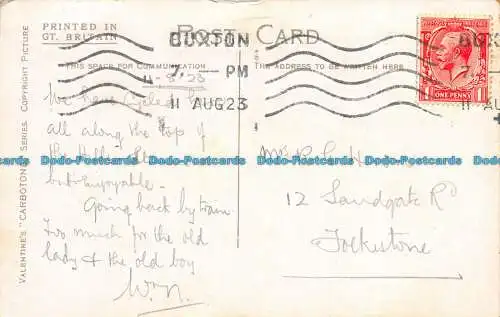 PRINTED IN
GT. BRITAIN
POST CARD
BUXTON
7. — PM
11 AUG 23
BUXTON
11 AU
ONE PENNY
THIS SPACE FOR COMMUNICATION
THE ADDRESS TO BE WRITTEN HERE
VALENTINE'S "CARBOTONE" SERIES. COPYRIGHT PICTURE
11-8-23
We have cycled
all along the top of
the Hills
but enjoyable.
Going back by train
Too much for the old
lady & the old boy
W.N.
Mrs
12 Sandgate Rd
Folkestone
Dado-Postcards Dado-Postcards Dado-Postcards Dado-Postcards Dado-Postcards Dado-Postcards